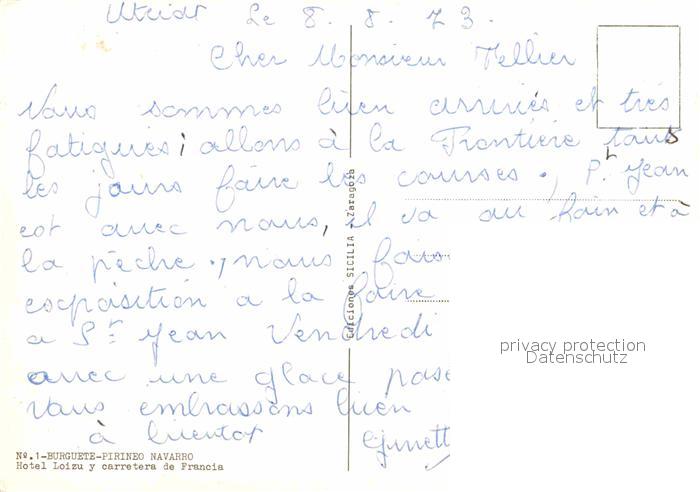 Le 8. 8. 73.
Cher Monsieur Tellier
Nous sommes bien arrivés et très
fatigués; allons à la Frontière tous
les jours faire les courses., P.t Jean
est avec nous, il va au bain et à
la pêche ., nous fais
exposition a la foire
a St Jean Vendredi
avec une glace pose
Vous embrassons bien
à bientot Ginett
Nº.1-BURGUETE-PIRINEO NAVARRO
Hotel Loizu y carretera de Francia
Ediciones SICILIA - Zaragoza
privacy protection
Datenschutz